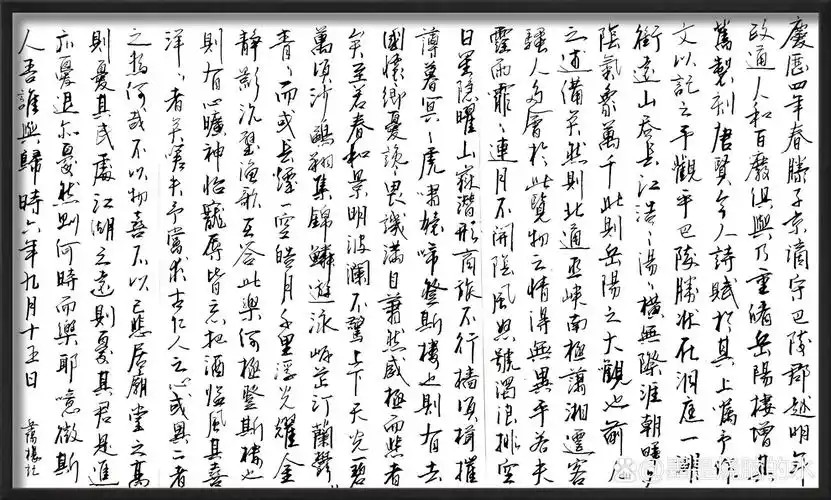 慶歷四年春滕子京謫守巴陵郡越明年
政通人和百廢俱興乃重脩岳陽樓增其
舊製刻唐賢今人詩賦於其上屬予作
文以記之予觀乎巴陵勝狀在洞庭一湖
銜遠山吞長江浩〻湯〻橫無際涯朝暉夕
陰氣象萬千此則岳陽之大觀也前人
之述備矣然則北通巫峽南極瀟湘遷客
騷人多會於此覽物之情得無異乎若夫
霪雨霏〻連月不開陰風怒號濁浪排空
日星隱曜山嶽潛形商旅不行檣傾楫摧
薄暮冥〻虎嘯猿啼登斯樓也則有去
國懷鄉憂讒畏譏滿目蕭然感極而悲者
矣至若春和景明波瀾不驚上下天光一碧
萬頃沙鷗翔集錦鱗游泳岸芷汀蘭鬱〻
青〻而或長煙一空皓月千里浮光耀金
靜影沉璧漁歌互答此樂何極登斯樓也
則有心曠神怡寵辱皆忘把酒臨風其喜
洋〻者矣嗟夫予嘗求古仁人之心或異二者
之為何哉不以物喜不以己悲居廟堂之高
則憂其民處江湖之遠則憂其君是進
亦憂退亦憂然則何時而樂耶噫微斯
人吾誰與歸時六年九月十五日